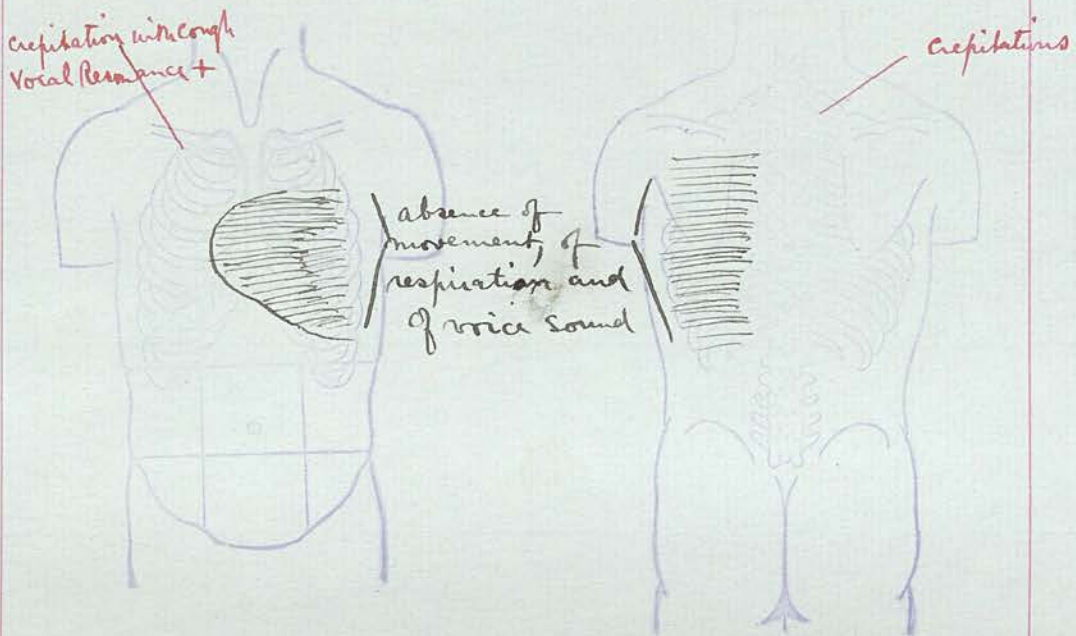 Crepitation with cough
Vocal Resonance +
Crepitations
absence of
movement, of
respiration and
of voice sound